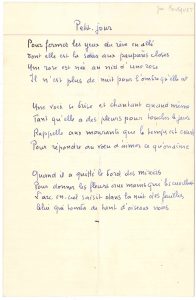 Joë Bousquet
Petit jour
Pour fermer les yeux du rêve en allé
Dont elle est la sœur aux paupières closes
Une rose est née au nid d'une rose
Il n'est plus de nuit pour l'ombre qu'elle
Une voix se brise et chantant quand même
Tant qu'elle a des pleurs pour toucher
Rappelle aux mourants que le temps est court
Pour répondre au vœu d'aimer ce qu'on aime
Quand il a quitté le bord des
Pour donner les fleurs aux mains que
L'arc en ciel saisit dans la nuit des feuilles
Celui qui tomba de tant d'oiseaux